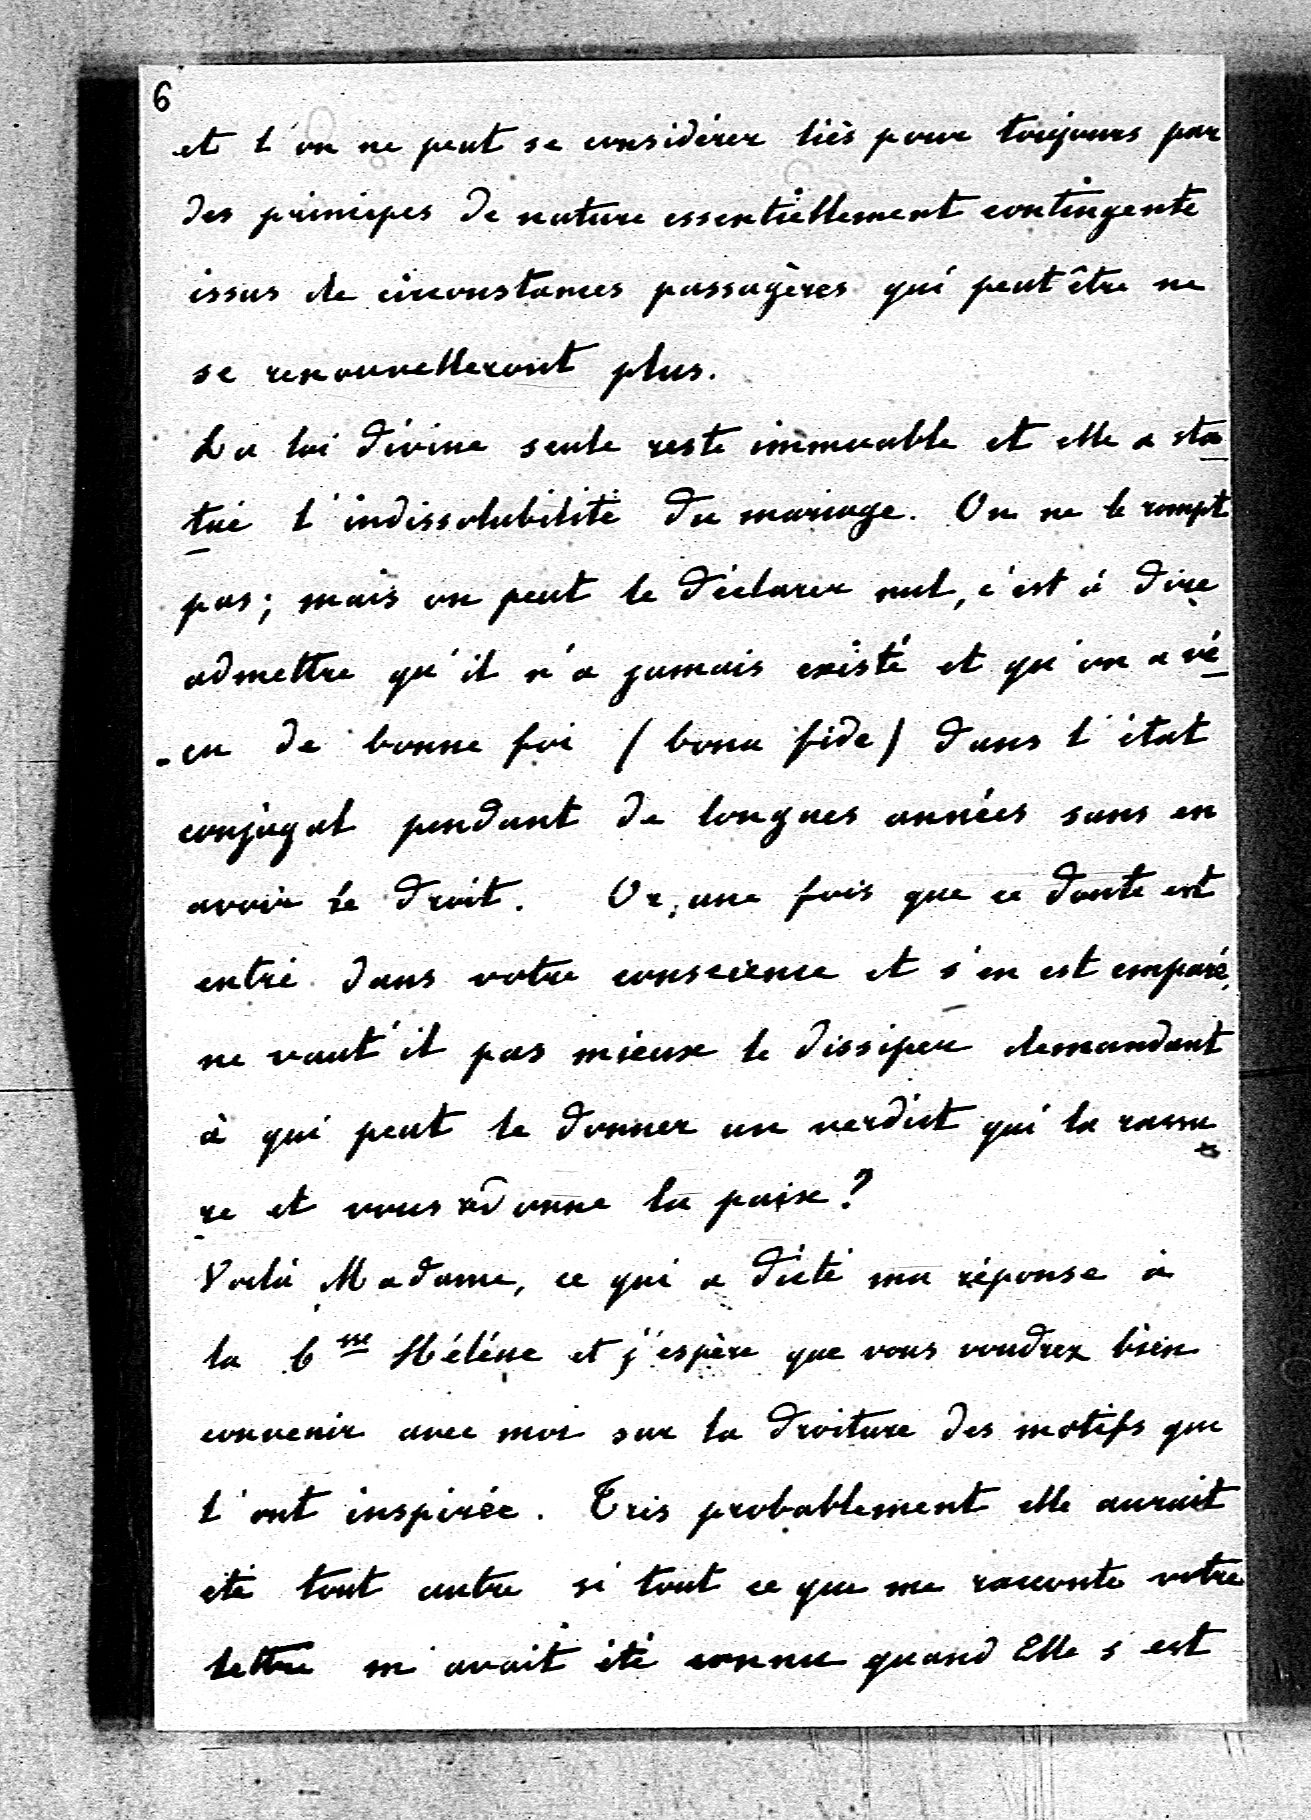 6
et l'on ne peut se considérer liés pour toujours par
des principes de nature essentiellement contingente
issus de circonstances passagères qui peut être ne
se renouvelleront plus.
La loi divine seule reste immuable et elle a sta
tué l'indissolubilité du mariage. On ne le rompt
pas; mais on peut le déclarer nul, c'est à dire
admettre qu'il n'a jamais existé et qu'on a vé
-cu de bonne foi (bona fide) dans l'état
conjugal pendant de longues années sans en
avoir le droit. Or, une fois que ce doute est
entré dans votre conscience et s'en est emparé,
ne vaut'il pas mieux le dissiper demandant
à qui peut le donner un verdict qui la rassu
re et vous redonne la paix?
Voilà Madame, ce qui a dicté ma réponse à
la Csse Hélène et j'espère que vous voudrez bien
convenir avec moi sur la droiture des motifs que
l'ont inspirée. Très probablement elle aurait
été tout autre si tout ce que me raconte votre
lettre m'avait été connu quand Elle s'est